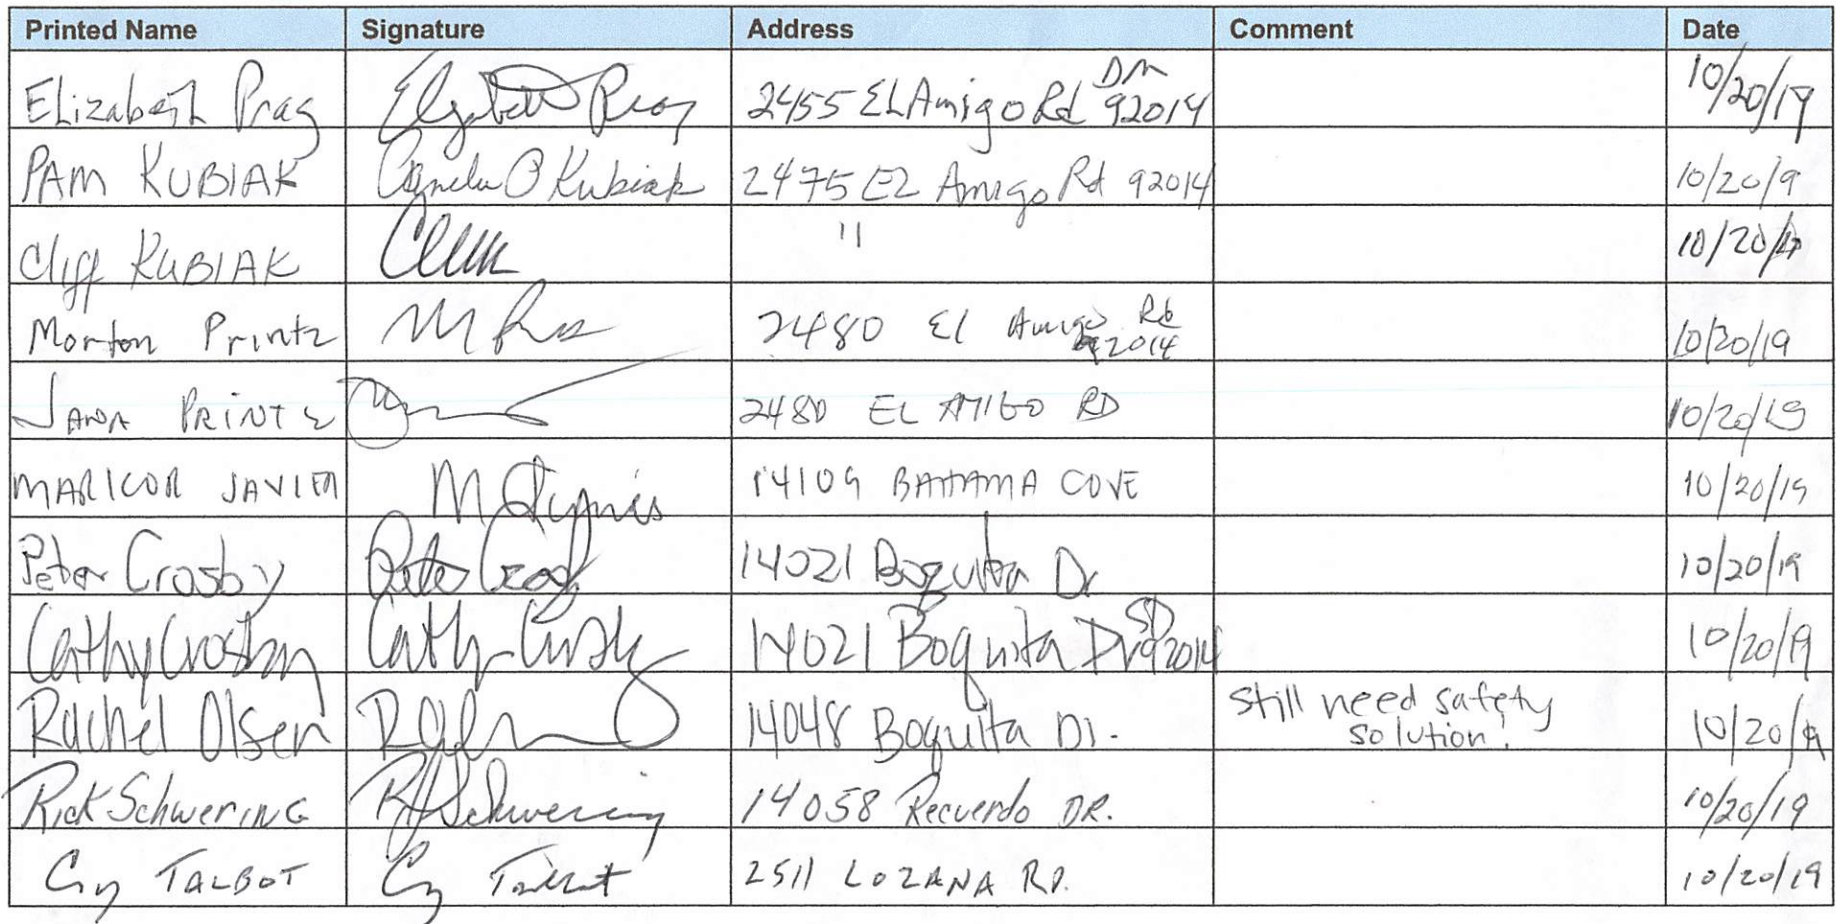 Printed Name Signature Address Comment Date
Elizabeth Prag Elizabeth Prag 2455 EL Amigo Rd DM 92014 10/20/19
PAM KUBIAK Pamela P Kubiak 2475 EL Amigo Rd 92014 10/20/19
Cliff KUBIAK " 10/20/19
Morton Printz 2480 El Amigo Rd 92014 10/20/19
JANA PRINTZ 2480 EL AMIGO RD 10/20/19
MARICOR JAVIER 14109 BAHAMA COVE 10/20/19
Peter Crosby Peter Crosby 14021 Boquita Dr 10/20/19
Cathy Crosby Cathy Crosby 14021 Boquita Dr SD 92014 10/20/19
Rachel Olsen 14048 Boquita Dr. still need safety solution! 10/20/19
Rick Schwering R Schwering 14058 Recuerdo DR. 10/20/19
Cy TALBOT Cy Talbot 2511 LOZANA RD. 10/20/19